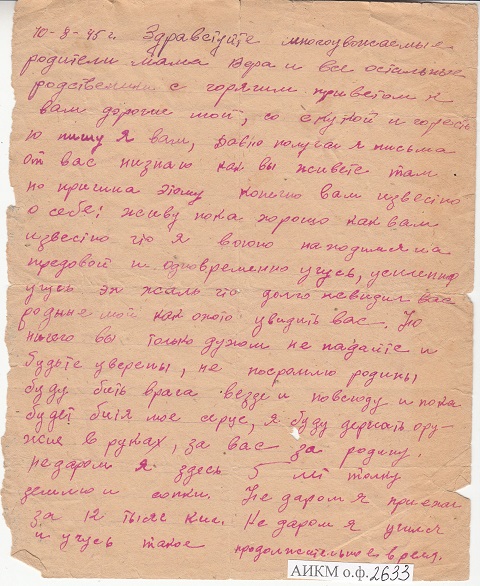 10-8-45 г. Здравстуйте многоуважаемые
родители мама Вера и все остальные
родственики с горячим приветом к
вам дорогие мои, со скукой и горесть
ю пишу я вам, давно получал я письма
от вас низнаю как вы живете там
но причина этому конечно вам известно
о себе: живу пока хорошо как вам
известно что я воюю находимся на
предовой и одновременно учусь, усиленно
учусь эх жаль что долго невидил вас
родные мои как охото увидить вас. Но
ничего вы только духом не падайте и
будьте уверены, не посрамлю родины
буду бить врага везде и повсюду и пока
будет битя мое серце, я буду держать ору-
жие в руках, за вас за родину.
Недаром я здесь 5 лет топчу
землю и сопки. Не даром я приехал
за 12 тысяч км. Не даром я учился
и учусь такое продолжительное время.
АИКМ о.ф. 2633